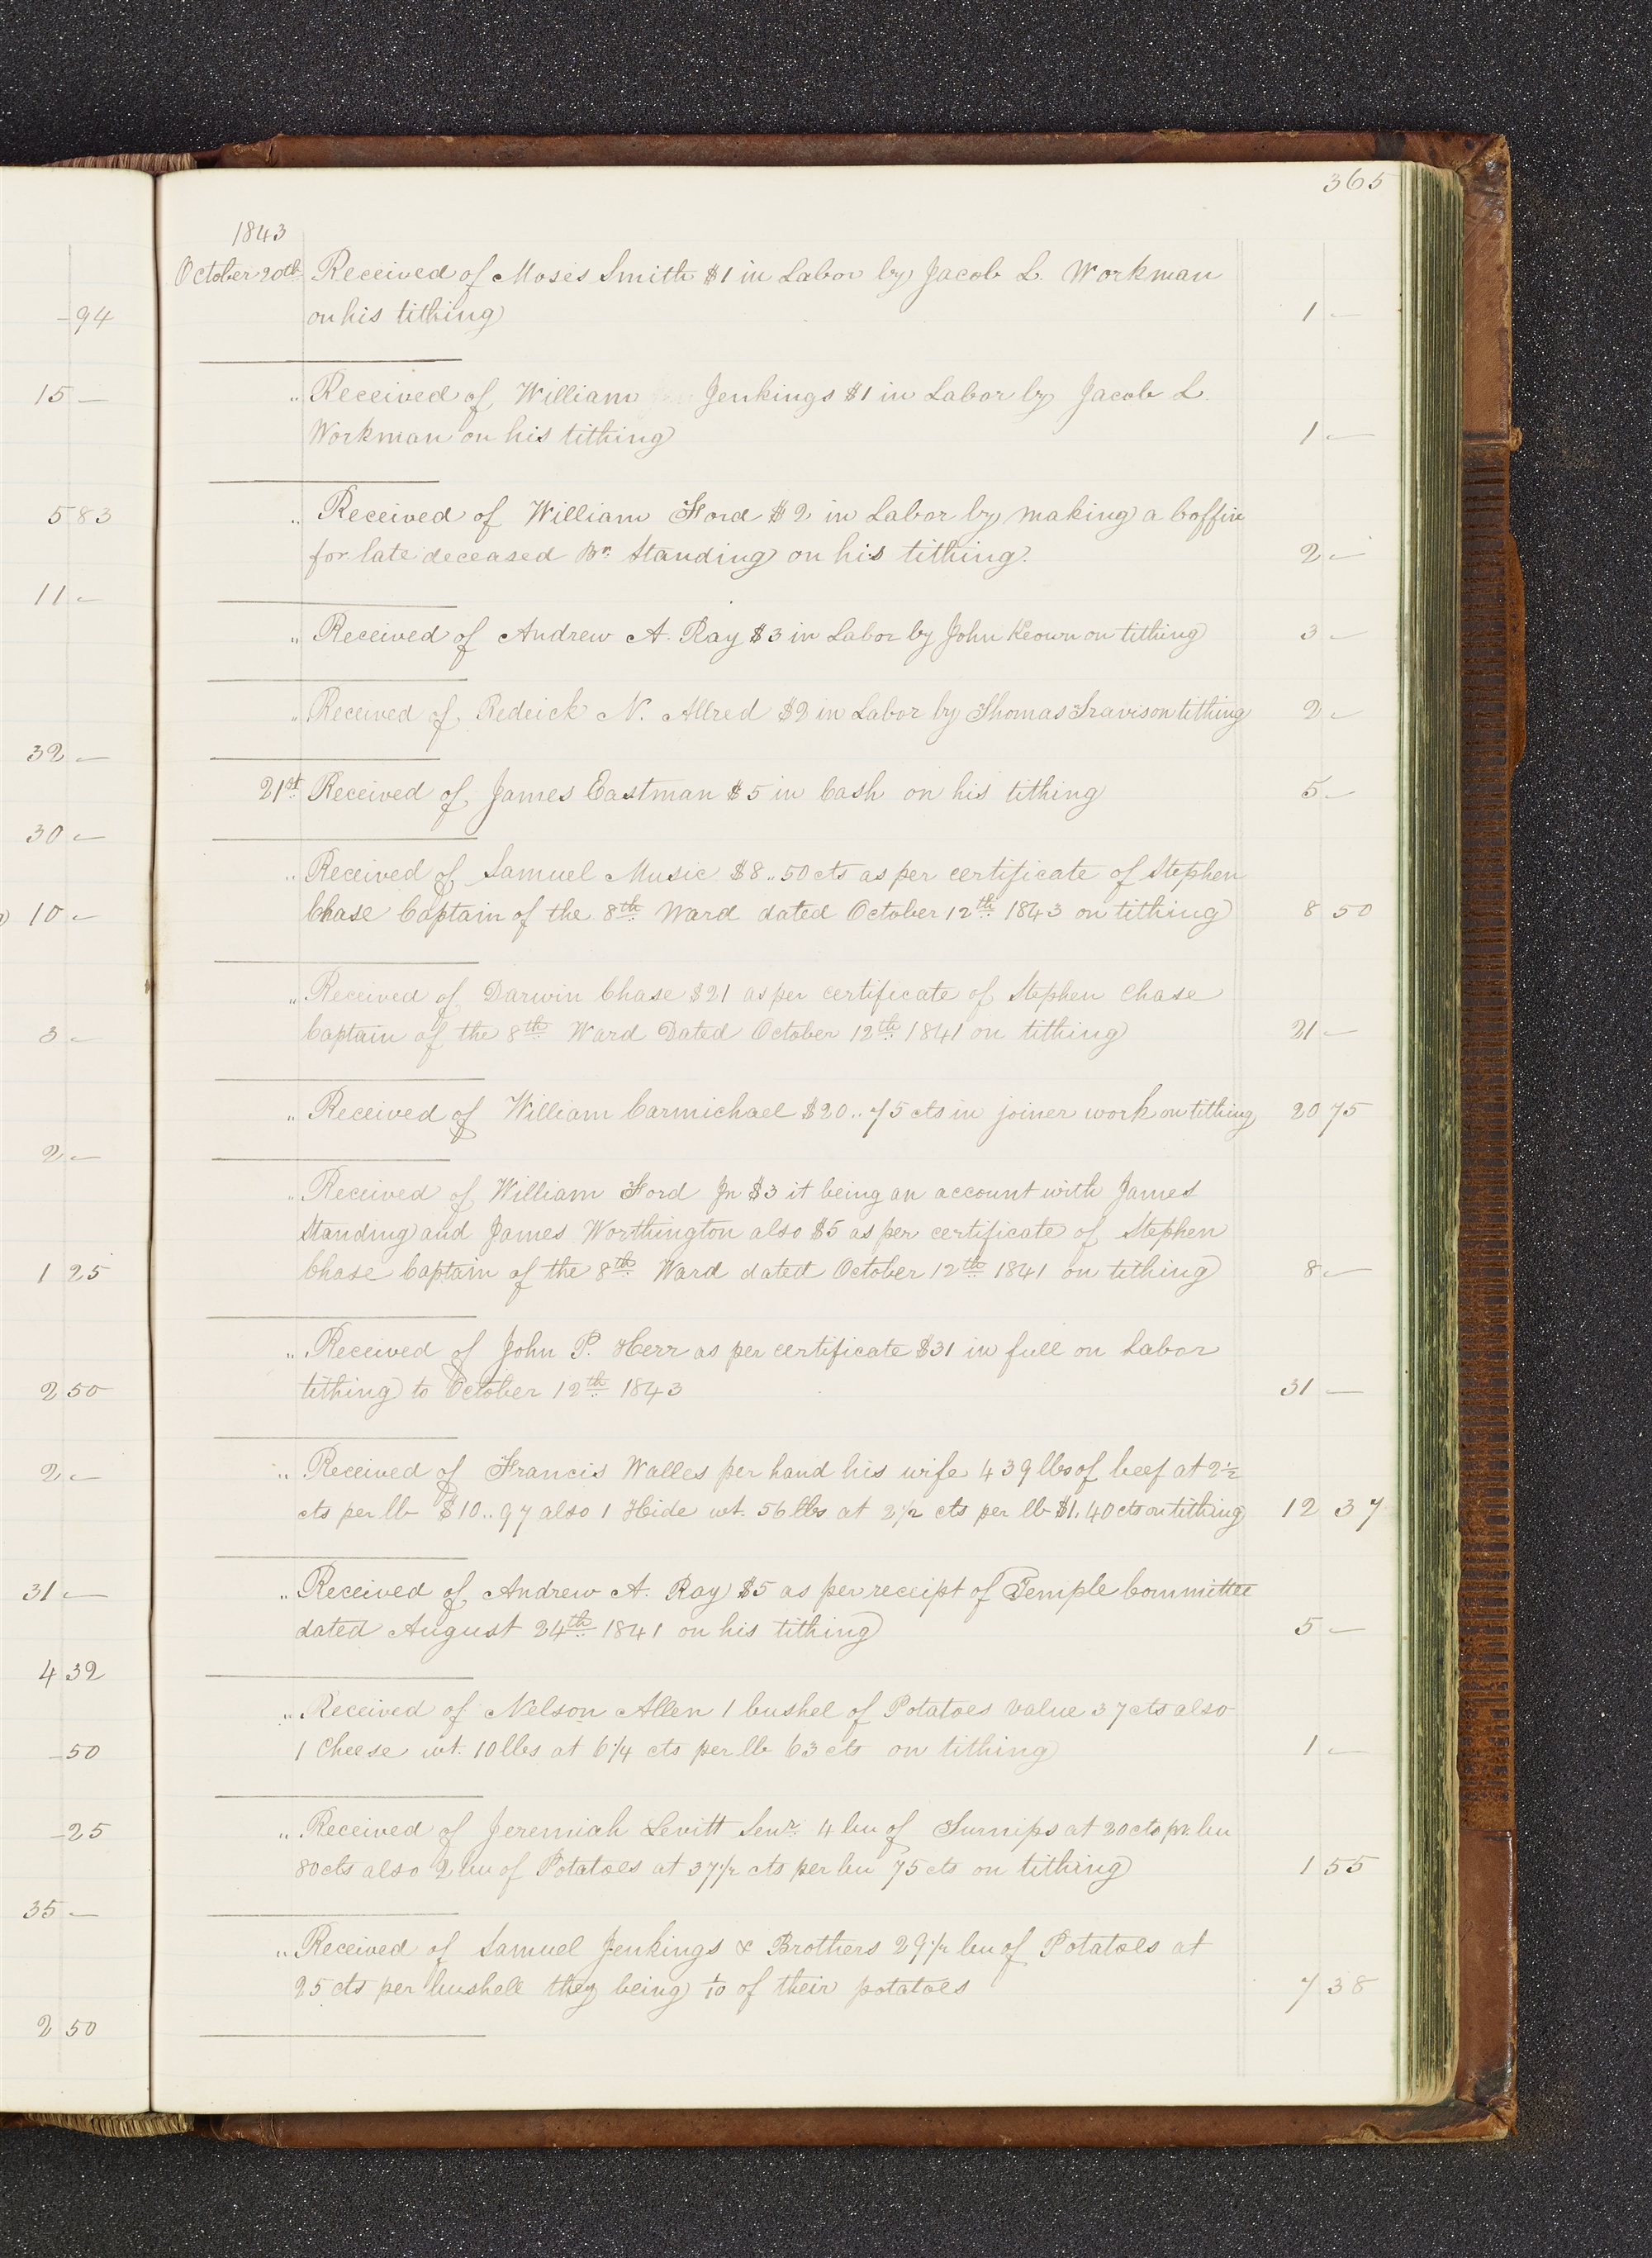 365
1843
October 20th Received of Moses Smith $1 in Labor by Jacob L. Workman
on his tithing 1 —
" Received of William Jenkings $1 in Labor by Jacob L.
Workman on his tithing 1 —
" Received of William Ford $2 in Labor by making a Coffin
for late deceased Br. Standing on his tithing. 2 —
" Received of Andrew A. Ray $3 in Labor by John Keown on tithing 3 —
" Received of Redeick N. Allred $2 in Labor by Thomas Travis on tithing 2 —
21st Received of James Eastman $5 in Cash on his tithing 5 —
" Received of Samuel Music $8..50 cts as per certificate of Stephen
Chase Captain of the 8th Ward dated October 12th 1843 on tithing 8 50
" Received of Darwin Chase $21 as per certificate of Stephen Chase
Captain of the 8th Ward Dated October 12th 1841 on tithing 21 —
" Received of William Carmichael $20..75 cts in joiner work on tithing 20 75
" Received of William Ford Jn $3 it being an account with James
Standing and James Worthington also $5 as per certificate of Stephen
Chase Captain of the 8th Ward dated October 12th 1841 on tithing 8 —
" Received of John P. Herr as per certificate $31 in full on Labor
tithing to October 12th 1843 31 —
" Received of Francis Walles per hand his wife 439 lbs of beef at 2 1/2
cts per lb $10..97 also 1 Hide wt. 56 lbs at 2 1/2 cts per lb $1.40 cts on tithing 12 37
" Received of Andrew A. Ray $5 as per receipt of Temple Committee
dated August 24th 1841 on his tithing 5 —
" Received of Nelson Allen 1 bushel of Potatoes value 37 cts also
1 Cheese wt. 10 lbs at 6 1/4 cts per lb 63 cts on tithing 1 —
" Received of Jeremiah Levitt Senr. 4 bu of Turnips at 20 cts pr. bu
80 cts also 2 bu of Potatoes at 37 1/2 cts per bu 75 cts on tithing 1 55
" Received of Samuel Jenkings & Brothers 29 1/2 bu of Potatoes at
25 cts per bushell they being 1/10 of their potatoes 7 38
- 94
15 —
5 83
11 —
32 —
30 —
10 —
3 —
2 —
1 25
2 50
2 —
31 —
4 32
- 50
- 25
35 —
2 50